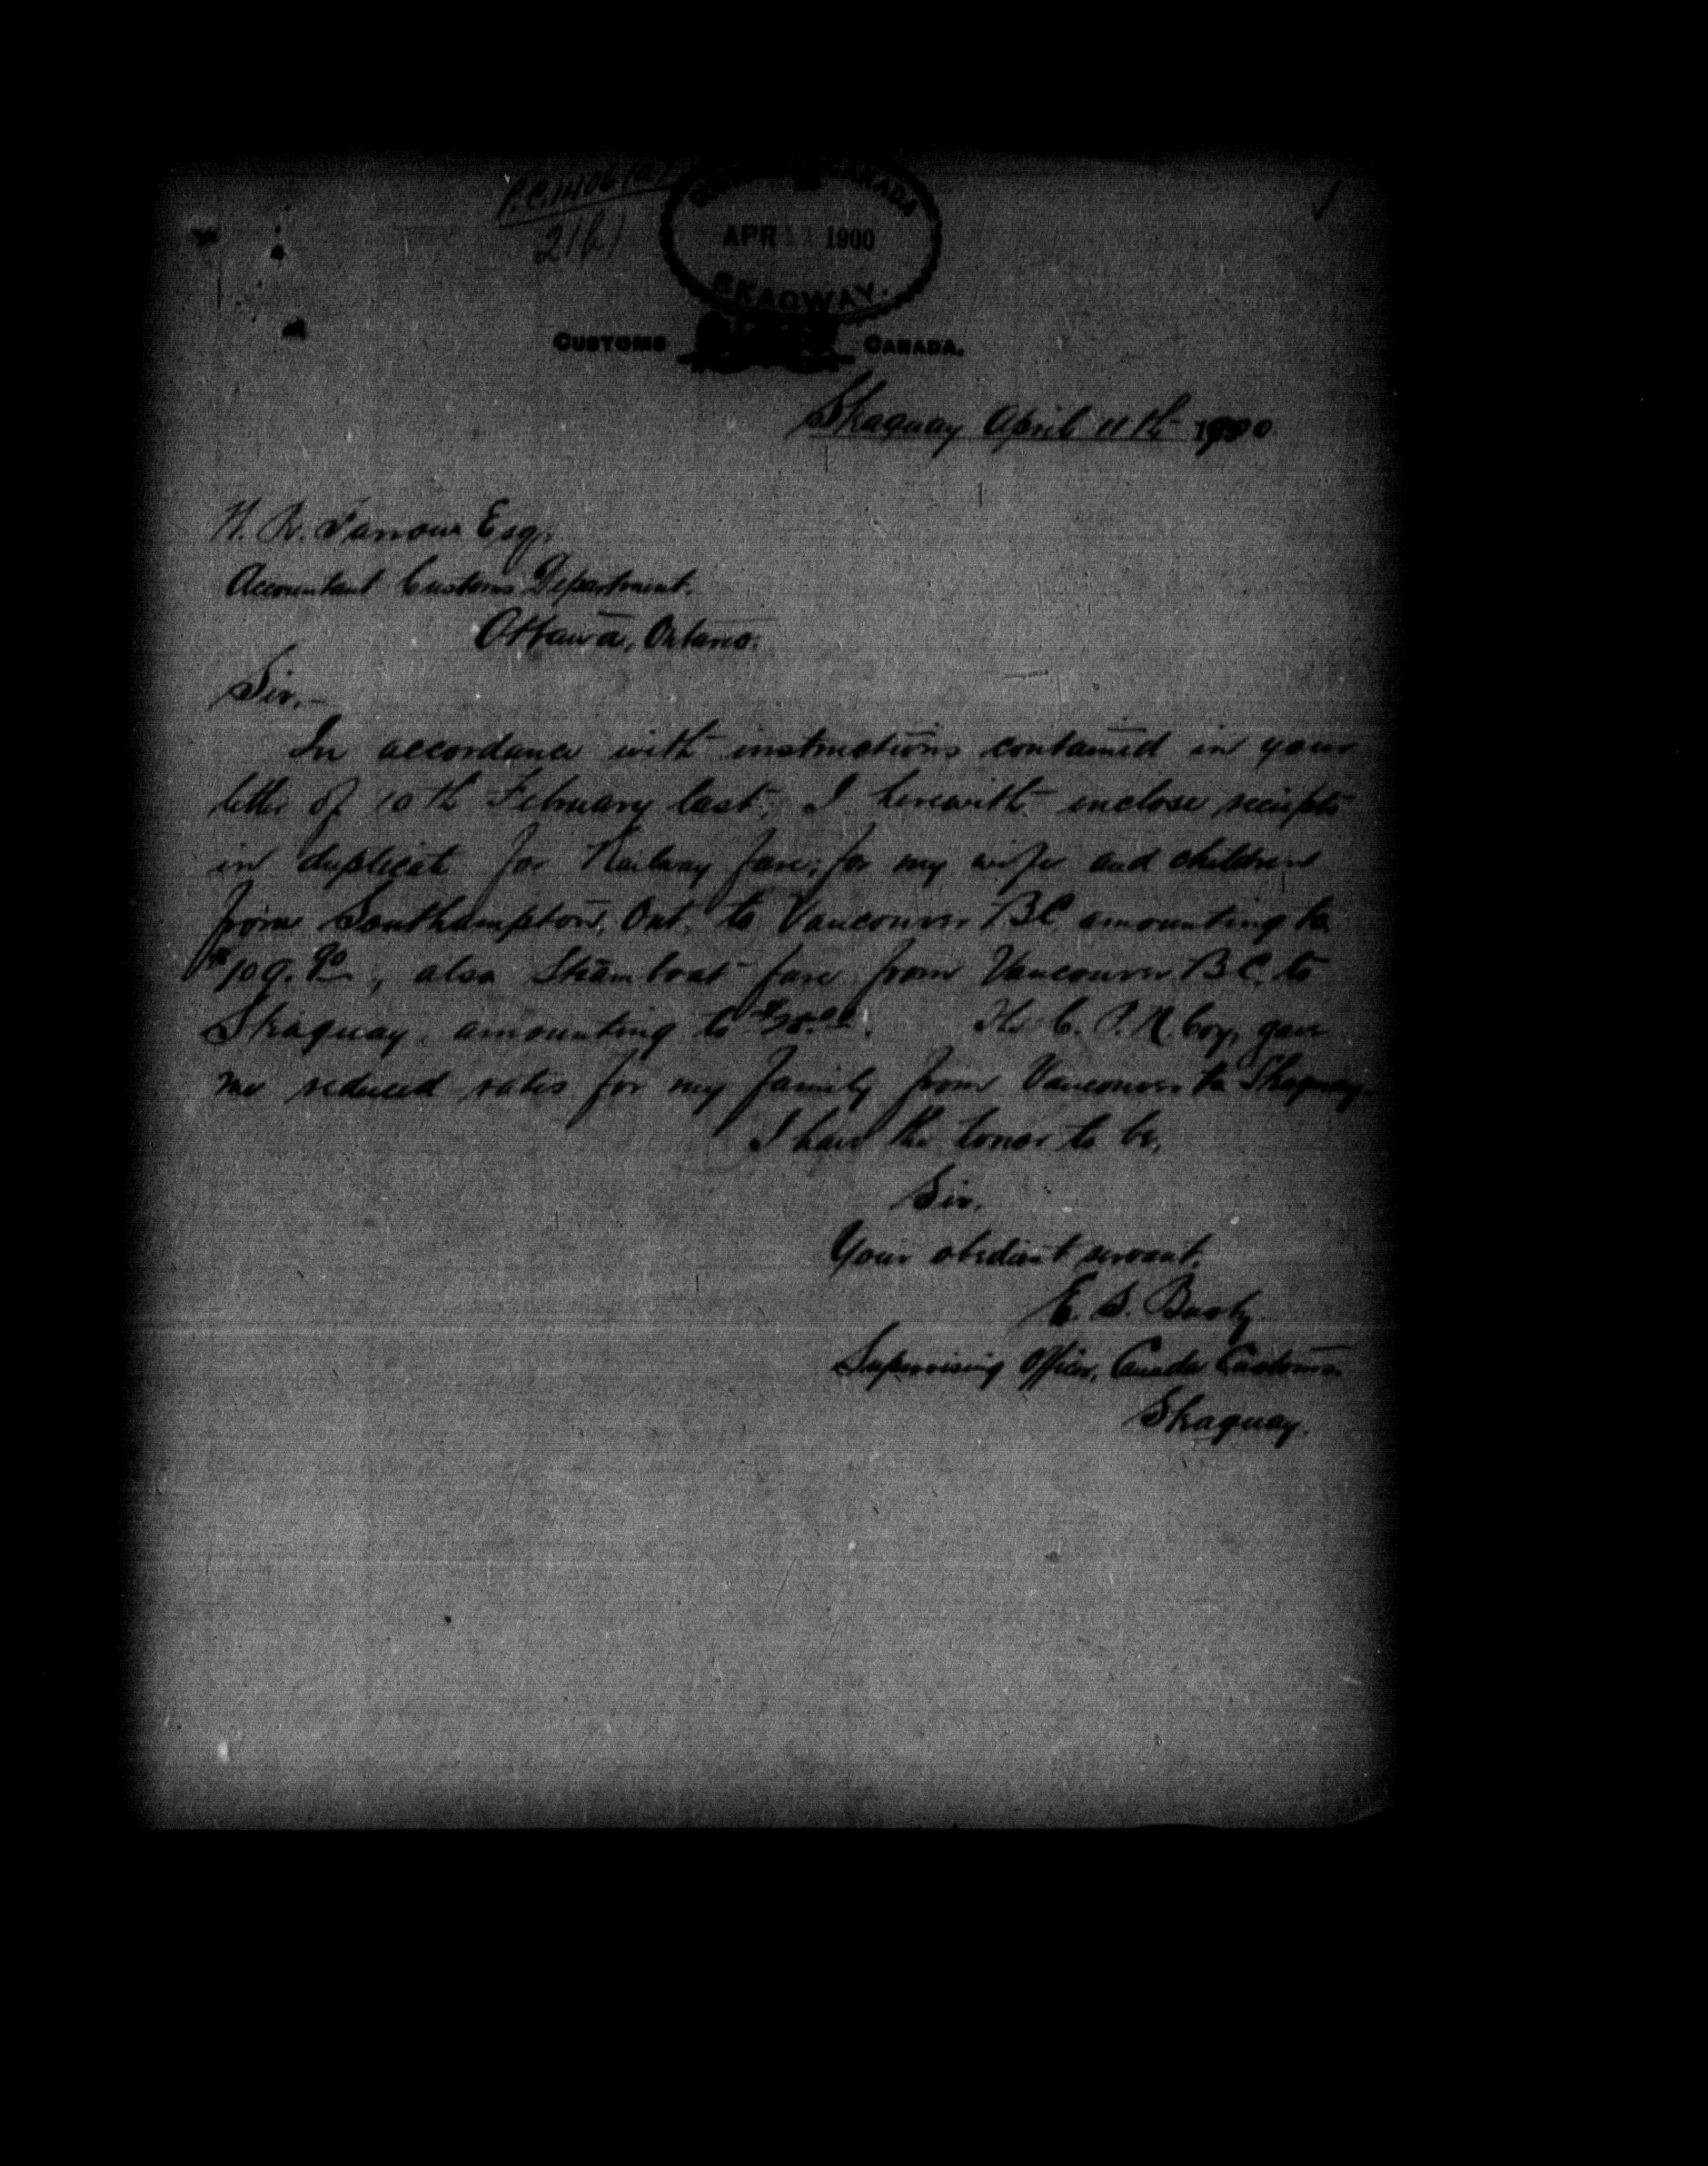 2(b)
CANADA
APR 11 1900
SKAGWAY.
CUSTOMS CANADA.
Skaguay April 11th 1900.
Esqr.
Accountant Customs Department.
Ottawa, Ontario.
Sir,-
In accordance with instructions contained in your
letter of 10th February last, I herewith inclose reciepts
in duplicate for Railway fare, for my wife and children
from Southampton, Ont. to Vancouver B.C. amounting to
$109.90, also Steamboat fare from Vancouver B.C. to
Skaguay, amounting to $28.00. The C. P. N. Coy, gave
me reduced rates for my family from Vancouver to Skaguay.
I have the honor to be,
Sir,
Your obedient servant,
E. S. Busby
Supervising Officer, Canada Customs.
Skaguay.